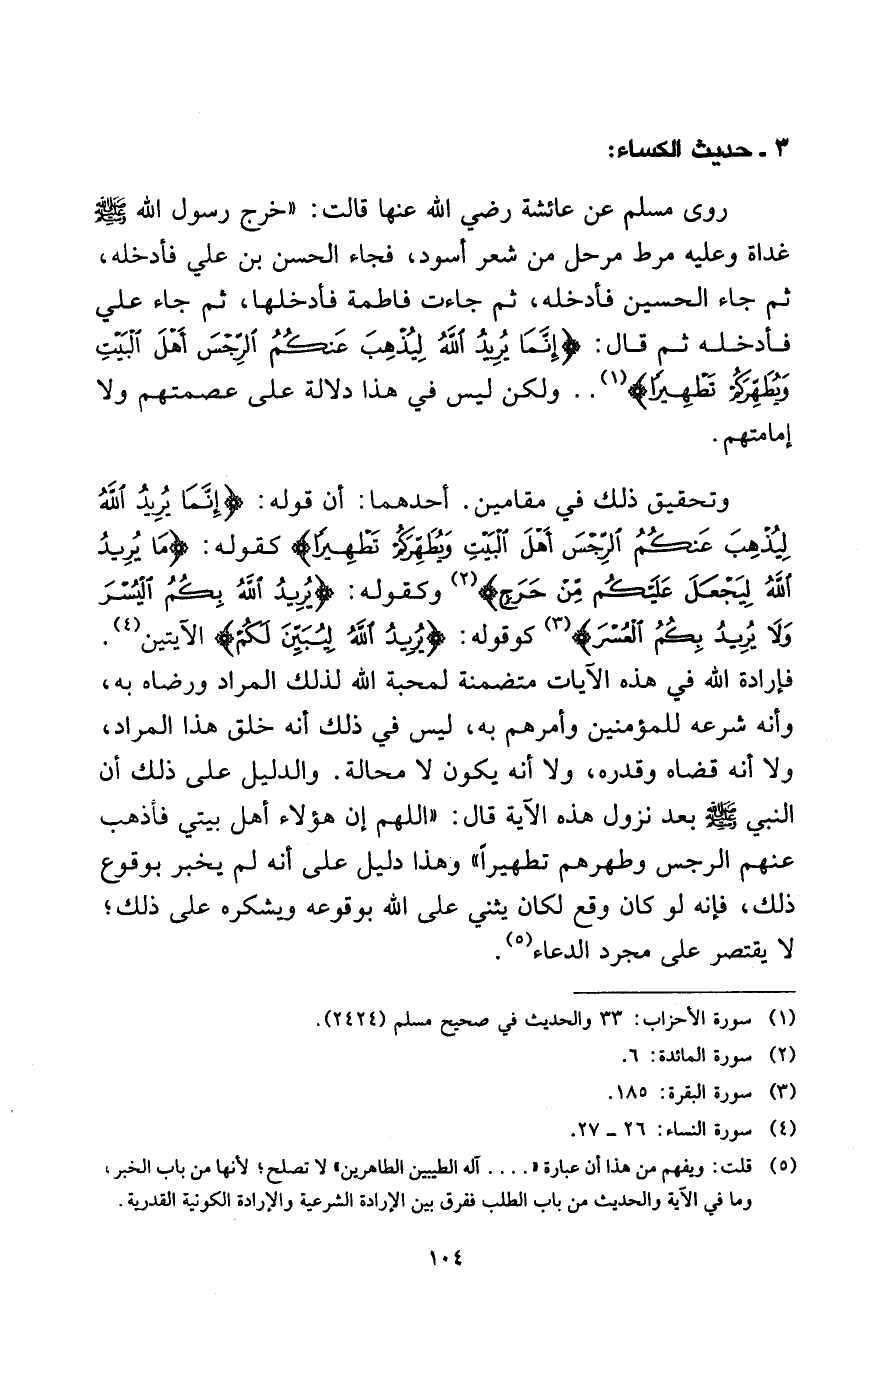 ٣ ـ حديث الكساء:
روى مسلم عن عائشة رضي الله عنها قالت: «خرج رسول الله ﷺ
غداة وعليه مرط مرحل من شعر أسود، فجاء الحسن بن علي فأدخله،
ثم جاء الحسين فأدخله، ثم جاءت فاطمة فأدخلها، ثم جاء علي
فأدخله ثم قال: ﴿إِنَّمَا يُرِيدُ ٱللَّهُ لِيُذْهِبَ عَنكُمُ ٱلرِّجْسَ أَهْلَ ٱلْبَيْتِ
وَيُطَهِّرَكُمْ تَطْهِيرًا﴾(١).. ولكن ليس في هذا دلالة على عصمتهم ولا
إمامتهم.
وتحقيق ذلك في مقامين. أحدهما: أن قوله: ﴿إِنَّمَا يُرِيدُ ٱللَّهُ
لِيُذْهِبَ عَنكُمُ ٱلرِّجْسَ أَهْلَ ٱلْبَيْتِ وَيُطَهِّرَكُمْ تَطْهِيرًا﴾ كقوله: ﴿مَا يُرِيدُ
ٱللَّهُ لِيَجْعَلَ عَلَيْكُم مِّنْ حَرَجٍ﴾(٢) وكقوله: ﴿يُرِيدُ ٱللَّهُ بِكُمُ ٱلْيُسْرَ
وَلَا يُرِيدُ بِكُمُ ٱلْعُسْرَ﴾(٣) كوقوله: ﴿يُرِيدُ ٱللَّهُ لِيُبَيِّنَ لَكُمْ﴾ الآيتين(٤).
فإرادة الله في هذه الآيات متضمنة لمحبة الله لذلك المراد ورضاه به،
وأنه شرعه للمؤمنين وأمرهم به، ليس في ذلك أنه خلق هذا المراد،
ولا أنه قضاه وقدره، ولا أنه يكون لا محالة. والدليل على ذلك أن
النبي ﷺ بعد نزول هذه الآية قال: «اللهم إن هؤلاء أهل بيتي فأذهب
عنهم الرجس وطهرهم تطهيراً» وهذا دليل على أنه لم يخبر بوقوع
ذلك، فإنه لو كان وقع لكان يثني على الله بوقوعه ويشكره على ذلك؛
لا يقتصر على مجرد الدعاء(٥).
(١) سورة الأحزاب: ٣٣ والحديث في صحيح مسلم (٢٤٢٤).
(٢) سورة المائدة: ٦.
(٣) سورة البقرة: ١٨٥.
(٤) سورة النساء: ٢٦ ـ ٢٧.
(٥) قلت: ويفهم من هذا أن عبارة «.... آله الطيبين الطاهرين» لا تصلح؛ لأنها من باب الخبر،
وما في الآية والحديث من باب الطلب ففرق بين الإرادة الشرعية والإرادة الكونية القدرية.
١٠٤